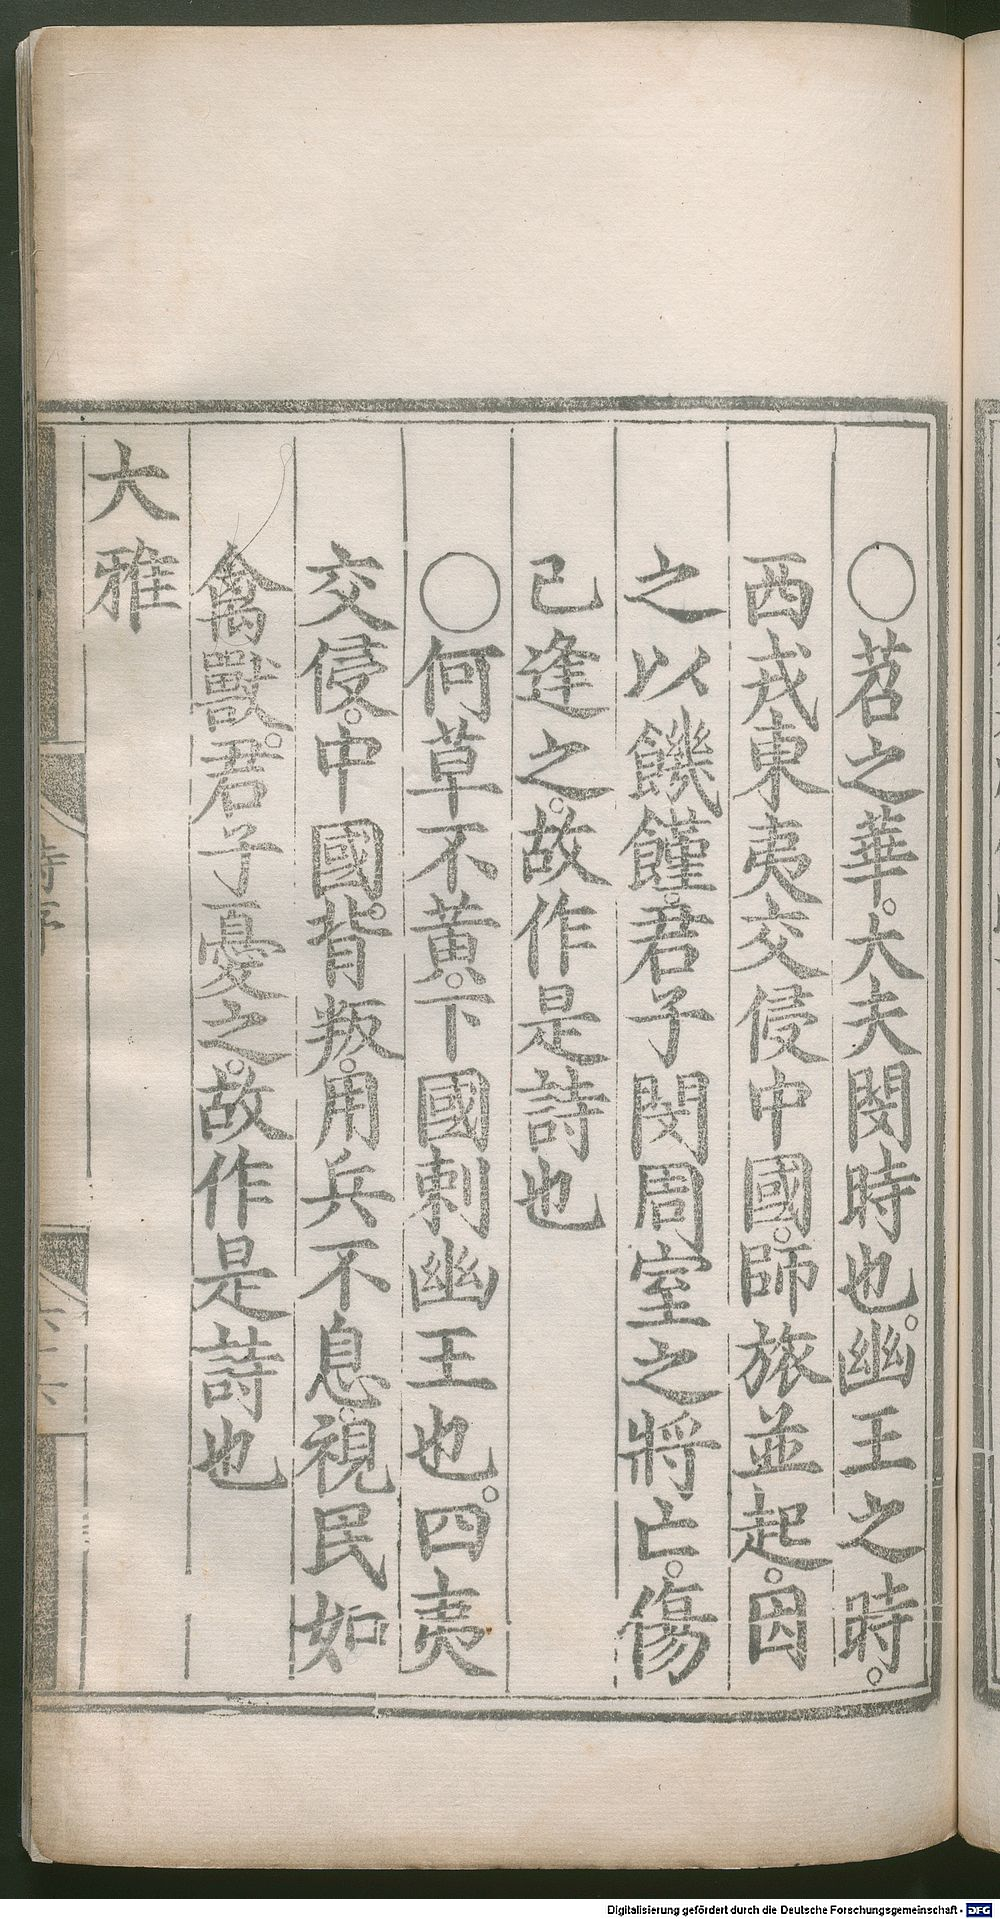 ○苕之華。大夫閔時也。幽王之時。
西戎東夷交侵中國。師旅並起。因
之以饑饉。君子閔周室之將亡。傷
已逢之。故作是詩也
○何草不黃。下國刺幽王也。四夷
交侵。中國。背叛。用兵不息。視民如
禽獸。君子憂之。故作是詩也
大雅
Digitalisierung gefördert durch die Deutsche Forschungsgemeinschaft - DFG